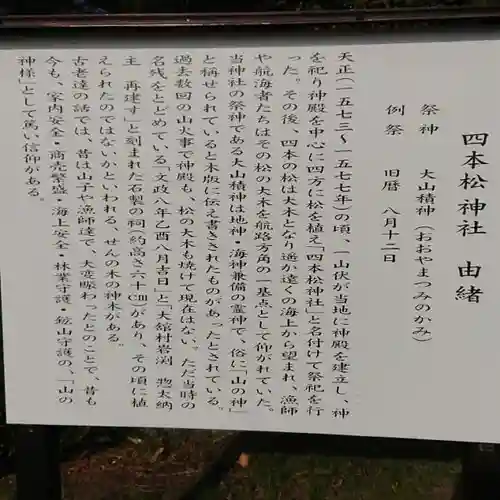 四本松神社 由緒
祭神 大山積神（おおやまつみのかみ）
例祭 旧暦 八月十二日
天正（一五七三～一五七七年）の頃、一山伏が当地に神殿を建立し、神
を祀り神殿を中心に四方に松を植え「四本松神社」と名付けて祭祀を行
った。その後、四本の松は大木となり遥か遠くの海上から望まれ、漁師
や航海者たちはその松の大木を航路方角の一基点として仰がれていた。
当神社の祭神である大山積神は地神・海神兼備の霊神で、俗に「山の神」
と称せられていると木版に伝え書きされたものがあったとされている。
過去数回の山火事で神殿も、松の大木も焼けて現在はない。ただ当時の
名残をとどめている文政八年乙酉八月吉日」と「大舘村岩渕 惣太納
主 再建す」と刻まれた石製の祠（約高さ六十㎝）があり、その頃に植
えられたのではないかといわれる、せんの木の神木がある。
古老達の話では、昔は山子や漁師達で、大変賑わったとのことで、昔も
今も、家内安全・商売繁盛・海上安全・林業守護・鉱山守護の、「山の
神様」として篤い信仰がある。